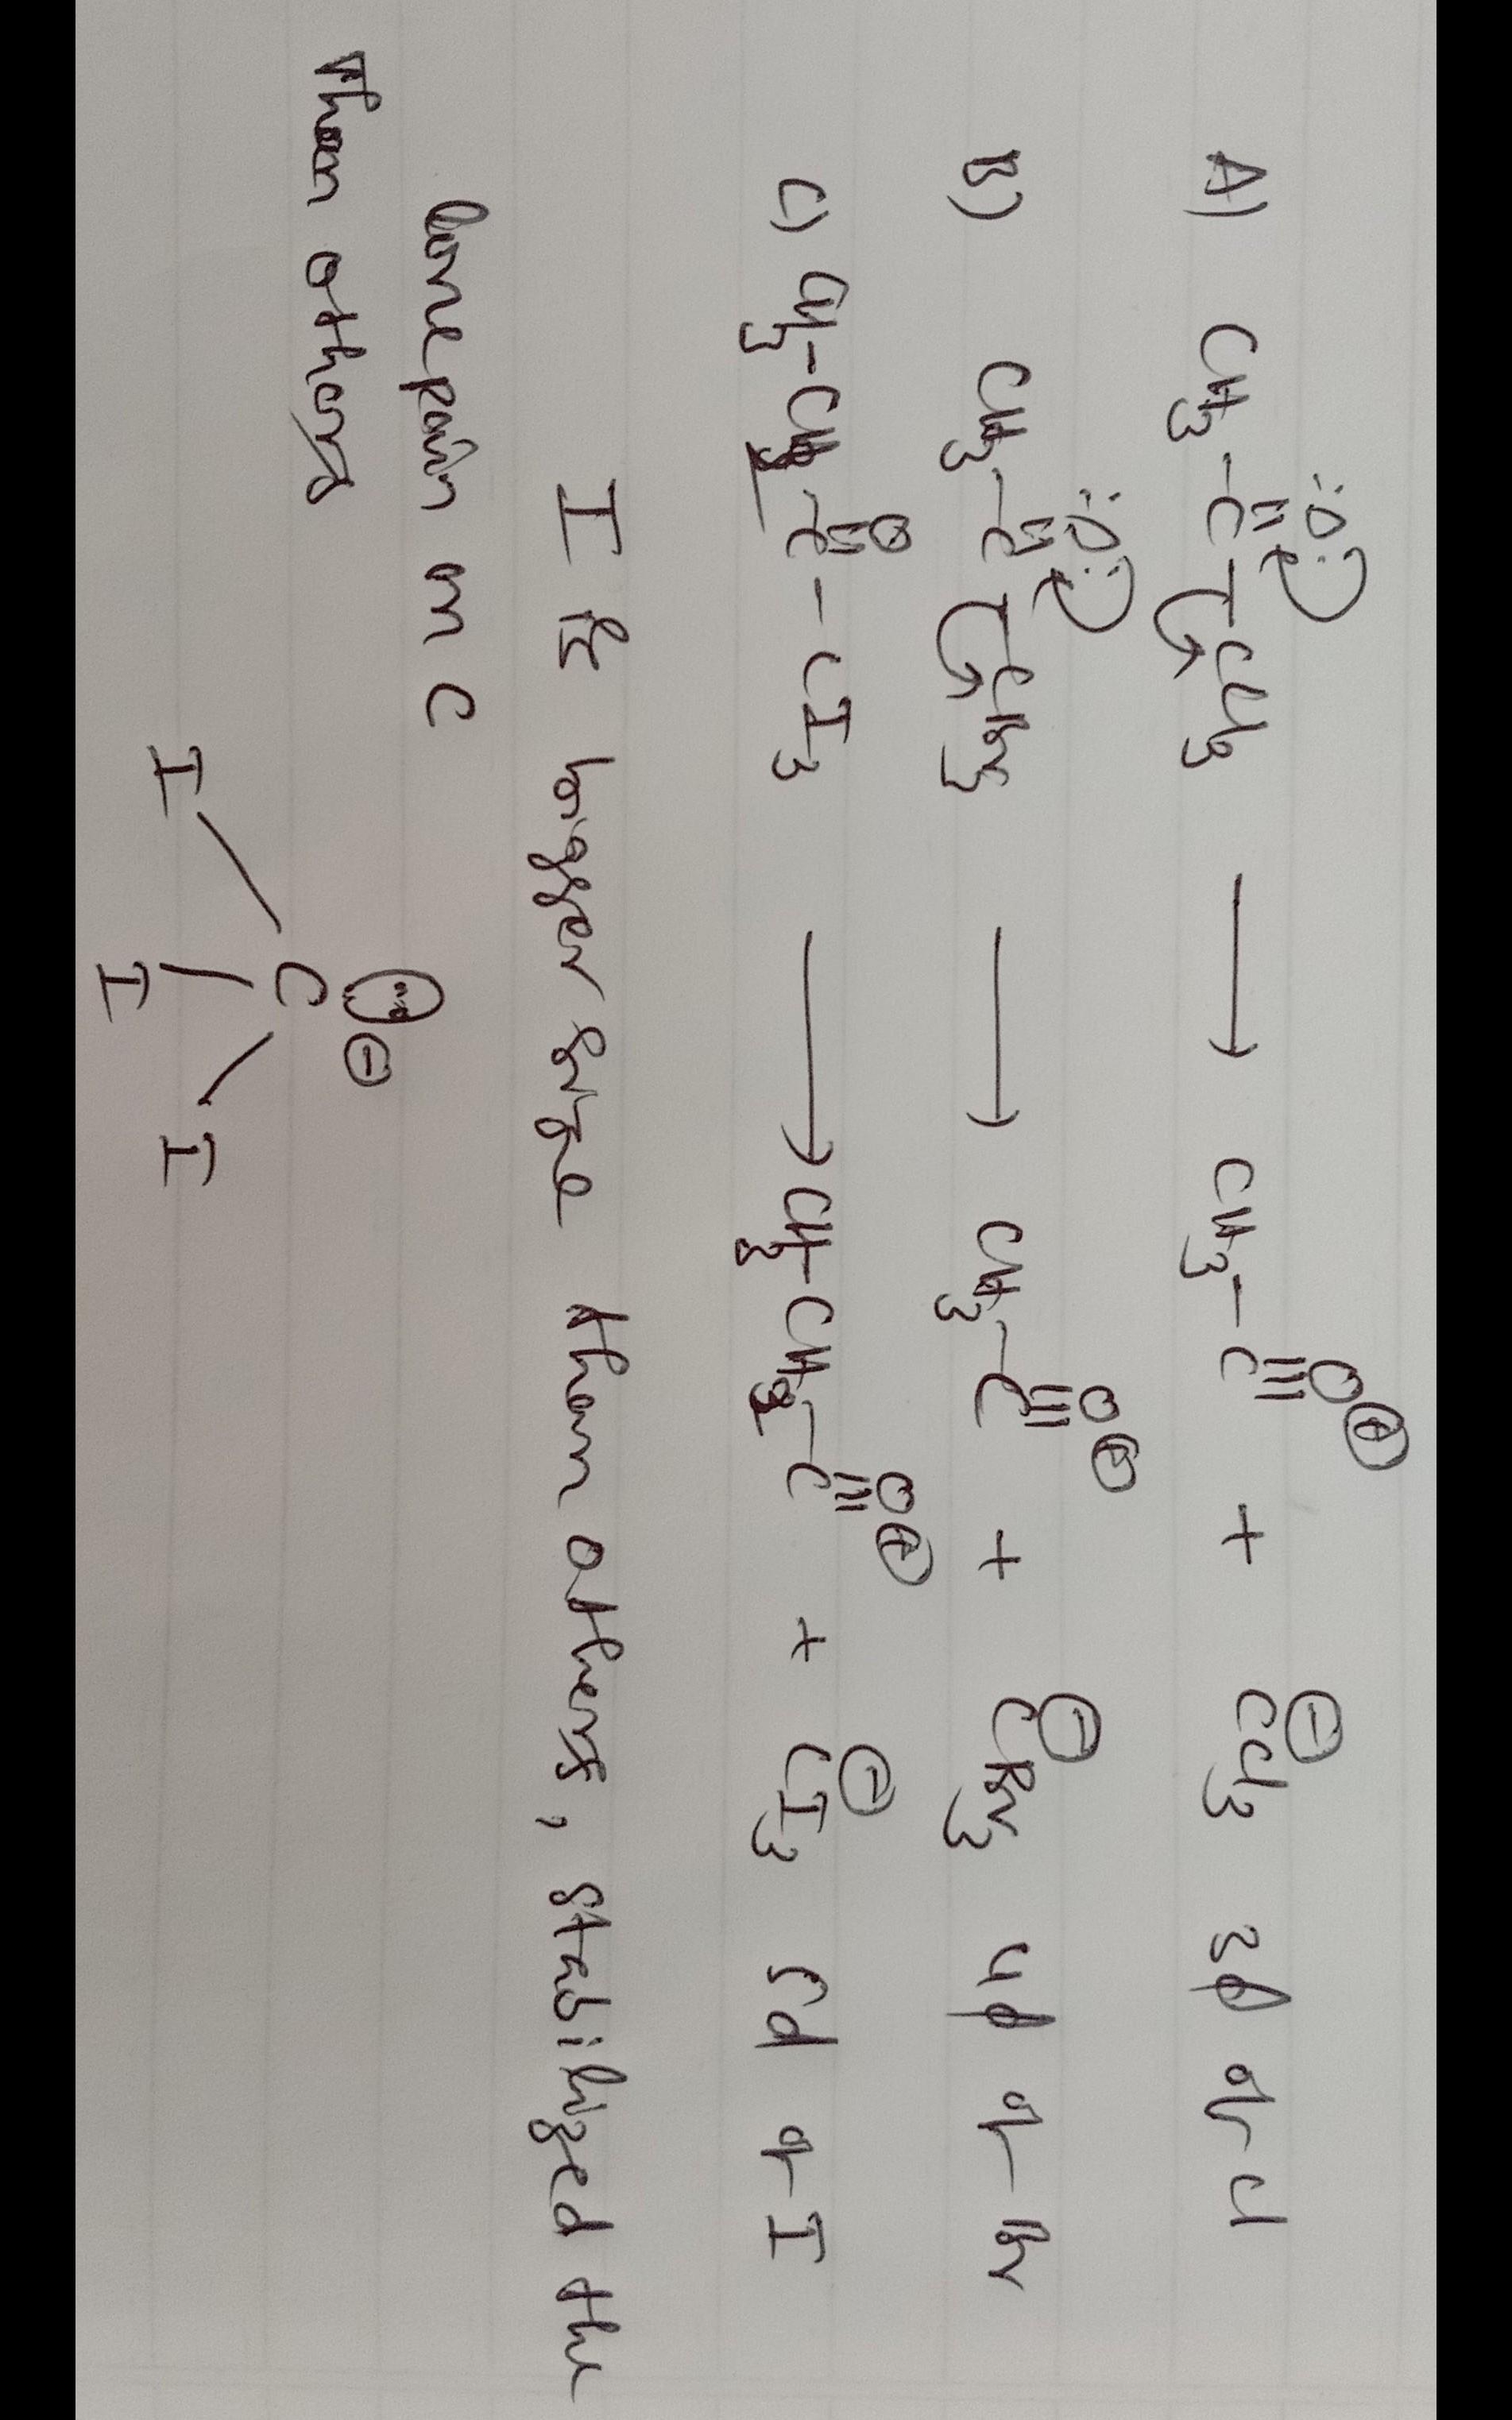 :O:
A) CH3-C-CCl3 → CH3-C≡O⊕ + ⊖CCl3 3p of Cl
:O:
B) CH3-C-CBr3 → CH3-C≡O⊕ + ⊖CBr3 4p of Br
O
C) CH3-CH2-C-CI3 → CH3-CH2-C≡O⊕ + ⊖CI3 5d of I
I is bigger size than others, stabilized the
lone pair on C
Than others
⊖
C
I I I